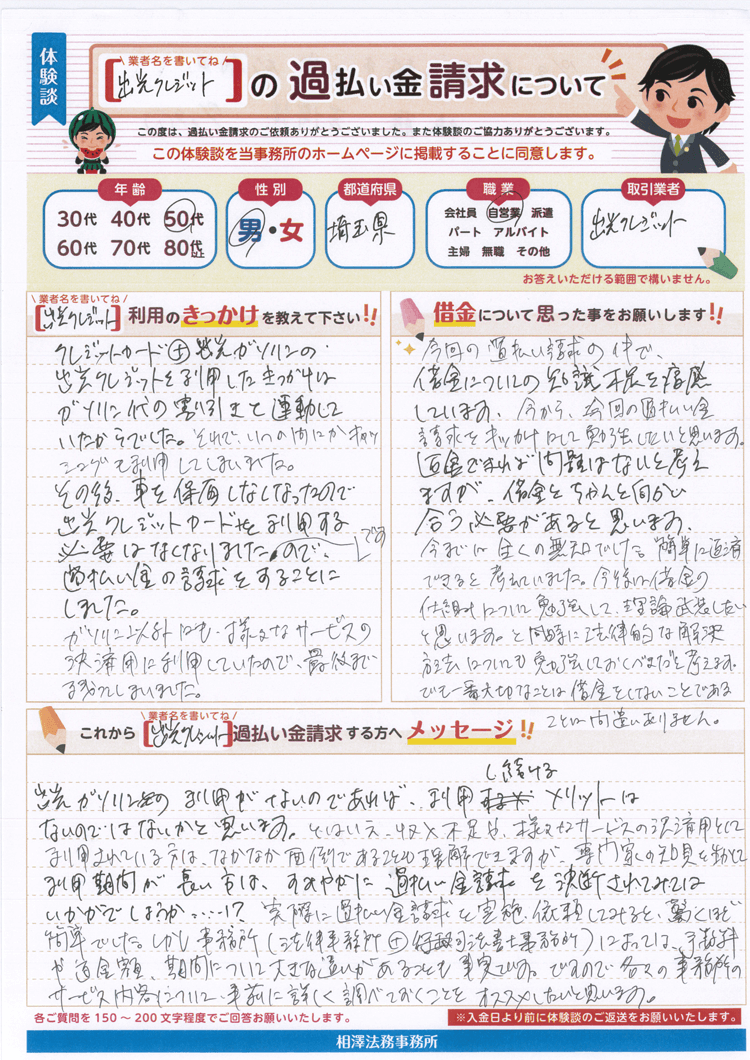 体験談
\ 業者名を書いてね /
【出光クレジット】の過払い金請求について
この度は、過払い金請求のご依頼ありがとうございました。また体験談のご協力ありがとうございます。
この体験談を当事務所のホームページに掲載することに同意します。
年齢
30代 40代 50代
60代 70代 80代以上
性別
男・女
都道府県
埼玉県
職業
会社員 自営業 派遣
パート アルバイト
主婦 無職 その他
取引業者
出光クレジット
お答えいただける範囲で構いません。
\ 業者名を書いてね /
【出光クレジット】利用のきっかけを教えて下さい!!
クレジットカード⊕出光ガソリンの
出光クレジットを利用したきっかけは
ガソリン代の割引きと連動して
いたからでした。それで、いつの間にかキャッ
シングも利用してしまいました。
その後、車を保有しなくなったので
出光クレジットカードを利用する
必要はなくなりました。ので、
です
過払い金の請求をすることに
しました。
ガソリン以外にも、様々なサービスの
決済用に利用していたので、最後まで
残りしまいました。
借金について思った事をお願いします!!
今回の過払い請求の件で、
借金についての知識不足を痛感
しています。今から、今回の過払い金
請求をキッカケにして勉強したいと思います。
返金できれば問題はないと考え
ますが、借金とちゃんと向かい
合う必要があると思います。
今までは全くの無知でした。簡単に返済
できると考えていました。今後は借金の
仕組みについて勉強して、理論武装したい
と思います。と同時に法律的な解決
方法についても勉強しておくべきだと考えます。
でも一番大切なことは借金をしないことである
ことに間違いありません。
\ 業者名を書いてね /
これから【出光クレジット】過払い金請求する方へメッセージ!!
し続ける
出光ガソリンの利用がないのであれば、利用メリットは
ないのではないかと思います。とはいえ、収入不足や、様々なサービスの決済用として
利用されている方は、なかなか面倒であることも理解できますが、専門家の知見を
利用期間が長い方は、すみやかに過払い金請求を決断されてみては
いかがでしょうか……!? 実際に過払い金請求を実施、依頼してみると、驚くほど
簡単でした。しかし事務所(法律事務所⊕司法書士事務所)によっては、手数料
や返金額、期間について大きな違いがあることも事実です。ですので各々の事務所の
サービス内容について、事前に詳しく調べておくことをオススメしたいと思います。
各ご質問を150～200文字程度でご回答お願いいたします。
※入金日より前に体験談のご返送をお願いいたします。
相澤法務事務所